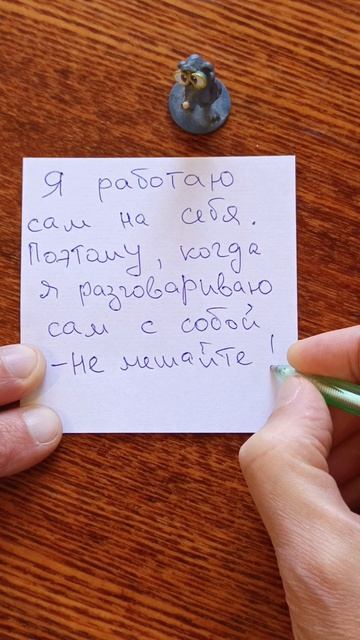 Я работаю
сам на себя.
Поэтому, когда
я разговариваю
сам с собой
-Не мешайте!